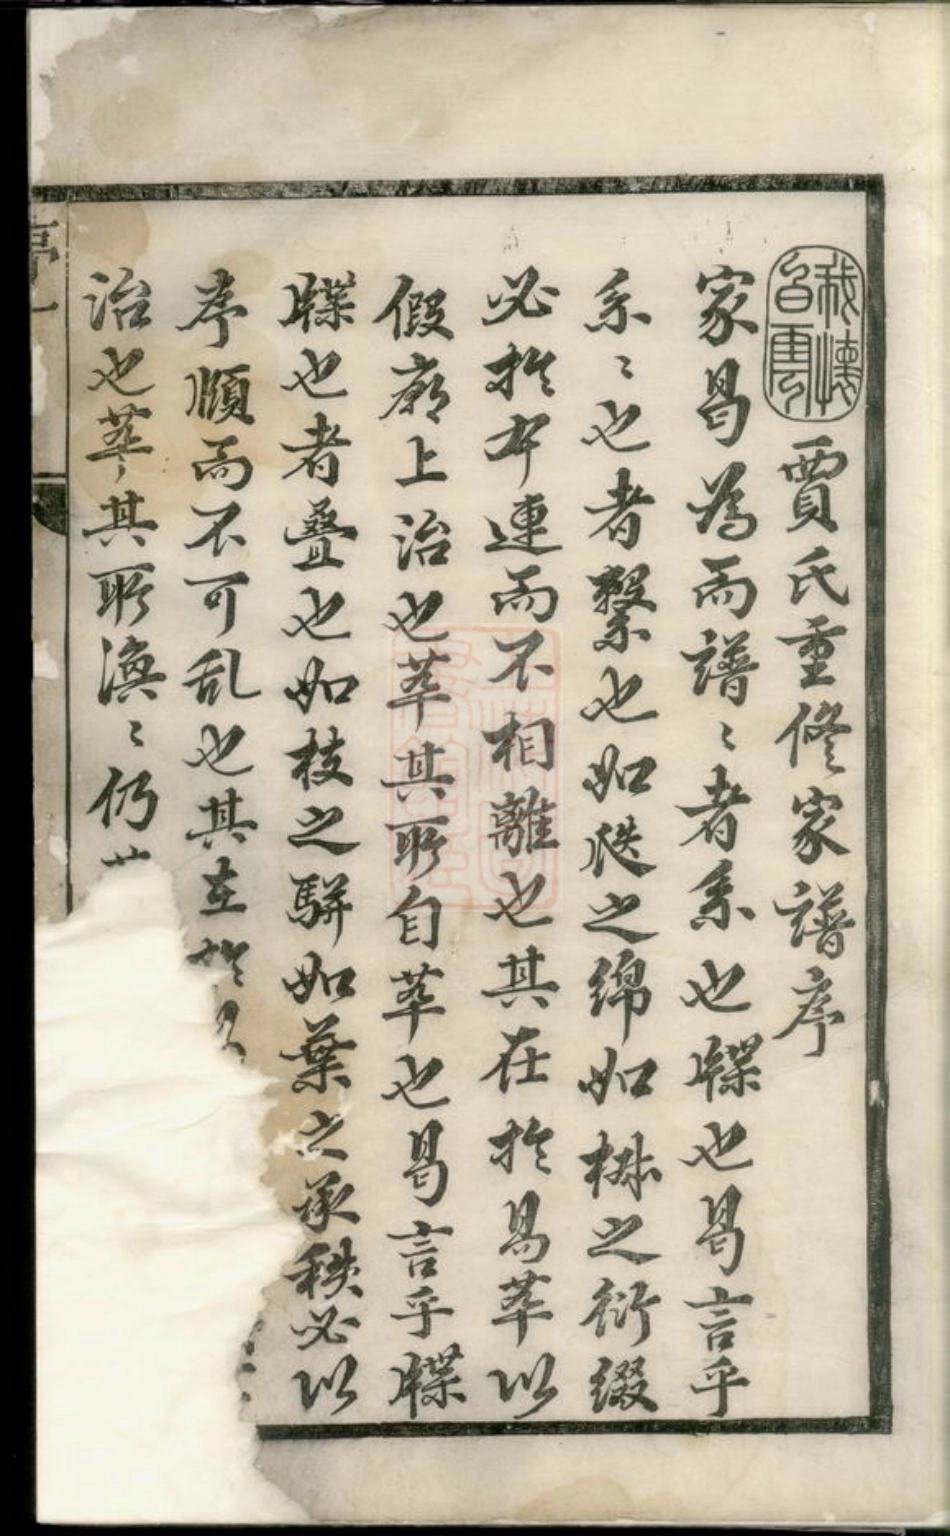 我懷
白雲
賈氏重修家譜序
家曷為而譜〻者系也牒也曷言乎
系〻也者繫也如瓞之綿如椒之衍綴
必於本連而不相離也其在於易萃以
假廟上治也萃其所自萃也曷言乎牒
牒也者疊也如枝之駢如葉之承秩必以
序順而不可乱也其在於
治也萃其所渙〻仍
序一